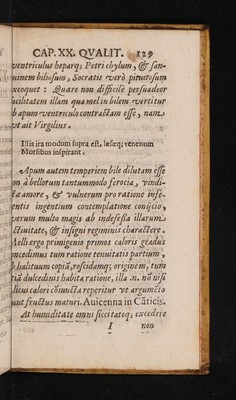 CAP. XX. QVALIT. 129
ventriculus heparq; Petri chylum, & san-
uinem biliosum, Socratis verò pituitosum
excoquet: Quare non difficilè persuadeor
acilitatem illam qua mel in bilem vertitur
b apum ventriculo contractam esse, nam
vt ait Virgilius.
Illis ira modum supra est, læseq; venenum
Morsibus inspirant.
Apum autem temperiem bile dilutam esse
on à bellorum tantummodo ferocia, vindi-
ctæ amore, & vulnerum pro ratione infe-
rentis ingentium contemplatione conijcio,
verum multo magis ab indefessa illarum
ctiuitate, & insigni regiminis charactere.
Melli ergo primigenio primos caloris gradus
oncedimus tum ratione tenuitatis partium,
b halituum copiã, roscidamq; originem, tum
tiã dulcedinis habita ratione, illa .n. nõ nisi
licui calori cõiuncta reperitur vt argumẽto
unt fructus maturi. Auicenna in Cãticis.
At humiditate omni siccitateq; excedere
I non